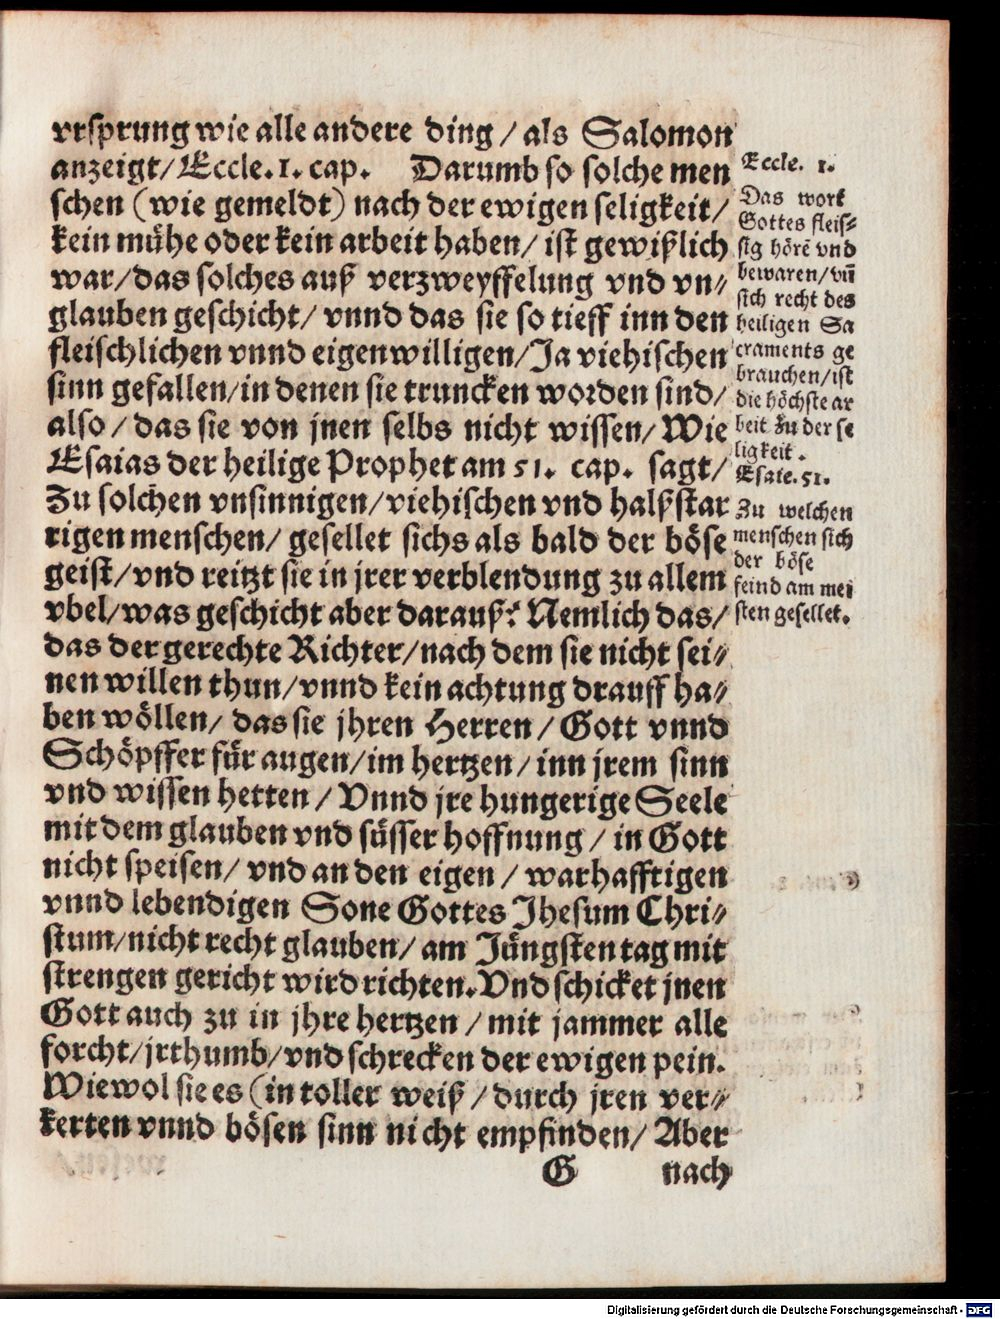 vrsprung wie alle andere ding / als Salomon
anzeigt/ Eccle. 1. cap. Darumb so solche men
schen (wie gemeldt) nach der ewigen seligkeit/
kein mühe oder kein arbeit haben/ ist gewißlich
war/ das solches auß verzweyffelung vnd vn⸗
glauben geschicht/ vnnd das sie so tieff inn den
fleischlichen vnnd eigenwilligen/ Ja viehischen
sinn gefallen/ in denen sie truncken worden sind/
also / das sie von jnen selbs nicht wissen/ Wie
Esaias der heilige Prophet am 51. cap. sagt/
Zu solchen vnsinnigen/ viehischen vnd halßstar
rigen menschen/ gesellet sichs als bald der böse
geist/ vnd reitzt sie in jrer verblendung zu allem
vbel/ was geschicht aber darauß? Nemlich das/
das der gerechte Richter/ nach dem sie nicht sei⸗
nen willen thun/ vnnd kein achtung drauff ha⸗
ben wöllen/ das sie jhren Herren / Gott vnnd
Schöpffer für augen/ im hertzen/ inn jrem sinn
vnd wissen hetten / Vnnd jre hungerige Seele
mit dem glauben vnd süsser hoffnung / in Gott
nicht speisen/ vnd an den eigen / warhafftigen
vnnd lebendigen Sone Gottes Jhesum Chri⸗
stum/ nicht recht glauben/ am Jüngsten tag mit
strengen gericht wird richten. Vnd schicket jnen
Gott auch zu in jhre hertzen / mit jammer alle
forcht/ jrthumb/ vnd schrecken der ewigen pein.
Wiewol sie es (in toller weiß / durch jren ver⸗
kerten vnnd bösen sinn nicht empfinden/ Aber
G nach
Eccle. 1.
Das wort
Gottes fleis⸗
sig hörē vnd
bewaren/ vñ
sich recht des
heiligen Sa
craments ge
brauchen/ ist
die höchste ar
beit zu der se
ligkeit.
Esaie. 51.
Zu welchen
menschen sich
der böse
feind am mei
sten gesellet.
Digitalisierung gefördert durch die Deutsche Forschungsgemeinschaft - DFG